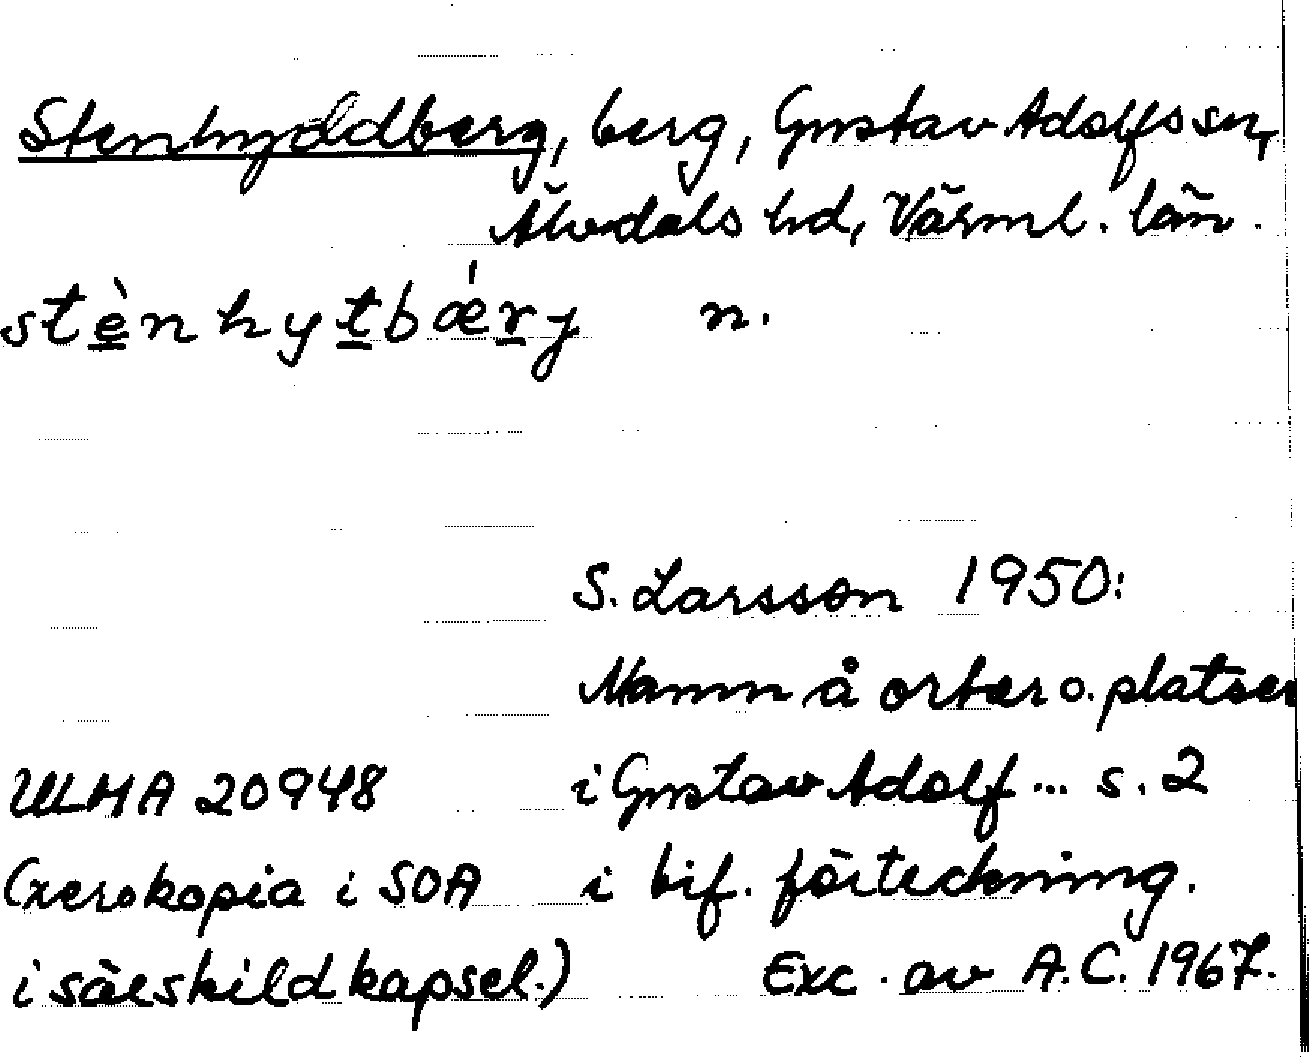 Stenhyddberg, berg, Gustav Adolfs sn,
Älvdals hd, Värml. län.
stè̱nhyṯbǽṟj n.
S. Larsson 1950:
Namn å orter o. platser
ULMA 20948 i Gustav Adolf ... s. 2
(xerokopia i SOA i bif. förteckning.
i särskild kapsel.) Exc. av A.C. 1967.